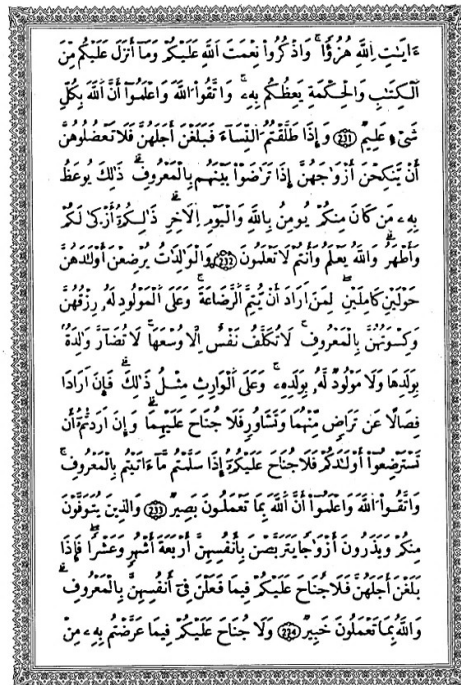 ءَايَٰتِ اِ۬للَّهِ هُزُؤًا وَاذْكُرُواْ نِعْمَتَ اَ۬للَّهِ عَلَيْكُمْ وَمَآ أَنزَلَ عَلَيْكُم مِّنَ
اَ۬لْكِتَٰبِ وَالْحِكْمَةِ يَعِظُكُم بِهِۦ وَاتَّقُواْ اُ۬للَّهَ وَاعْلَمُوٓاْ أَنَّ اَ۬للَّهَ بِكُلِّ
شَيْءٍ عَلِيمٌ 231 وَإِذَا طَلَّقْتُمُ اُ۬لنِّسَآءَ فَبَلَغْنَ أَجَلَهُنَّ فَلَا تَعْضُلُوهُنَّ
أَنْ يَّنكِحْنَ أَزْوَٰجَهُنَّ إِذَا تَرَٰضَوْاْ بَيْنَهُم بِالْمَعْرُوفِ ذَٰلِكَ يُوعَظُ
بِهِۦ مَن كَانَ مِنكُمْ يُومِنُ بِاللَّهِ وَالْيَوْمِ اِ۬لَاخِرِ ذَٰلِكُمُۥٓ أَزْكَىٰ لَكُمْ
وَأَطْهَرُ وَاللَّهُ يَعْلَمُ وَأَنتُمْ لَا تَعْلَمُونَ 232 وَالْوَٰلِدَٰتُ يُرْضِعْنَ أَوْلَٰدَهُنَّ
حَوْلَيْنِ كَامِلَيْنِ لِمَنَ اَرَادَ أَنْ يُّتِمَّ اَ۬لرَّضَاعَةَ وَعَلَى اَ۬لْمَوْلُودِ لَهُۥ رِزْقُهُنَّ
وَكِسْوَتُهُنَّ بِالْمَعْرُوفِ لَا تُكَلَّفُ نَفْسٌ اِلَّا وُسْعَهَا لَا تُضَآرَّ وَٰلِدَةٌۢ
بِوَلَدِهَا وَلَا مَوْلُودٌ لَّهُۥ بِوَلَدِهِۦ وَعَلَى اَ۬لْوَارِثِ مِثْلُ ذَٰلِكَ فَإِنَ اَرَادَا
فِصَالًا عَن تَرَاضٍ مِّنْهُمَا وَتَشَاوُرٍ فَلَا جُنَاحَ عَلَيْهِمَا وَإِنَ اَرَدتُّمُۥٓ أَن
تَسْتَرْضِعُوٓاْ أَوْلَٰدَكُمْ فَلَا جُنَاحَ عَلَيْكُمُۥٓ إِذَا سَلَّمْتُم مَّآ ءَاتَيْتُم بِالْمَعْرُوفِ
وَاتَّقُواْ اُ۬للَّهَ وَاعْلَمُوٓاْ أَنَّ اَ۬للَّهَ بِمَا تَعْمَلُونَ بَصِيرٌ 233 وَالذِينَ يُتَوَفَّوْنَ
مِنكُمْ وَيَذَرُونَ أَزْوَٰجًا يَتَرَبَّصْنَ بِأَنفُسِهِنَّ أَرْبَعَةَ أَشْهُرٍ وَعَشْرًا فَإِذَا
بَلَغْنَ أَجَلَهُنَّ فَلَا جُنَاحَ عَلَيْكُمْ فِيمَا فَعَلْنَ فِىٓ أَنفُسِهِنَّ بِالْمَعْرُوفِ
وَاللَّهُ بِمَا تَعْمَلُونَ خَبِيرٌ 234 وَلَا جُنَاحَ عَلَيْكُمْ فِيمَا عَرَّضْتُم بِهِۦ مِنْ